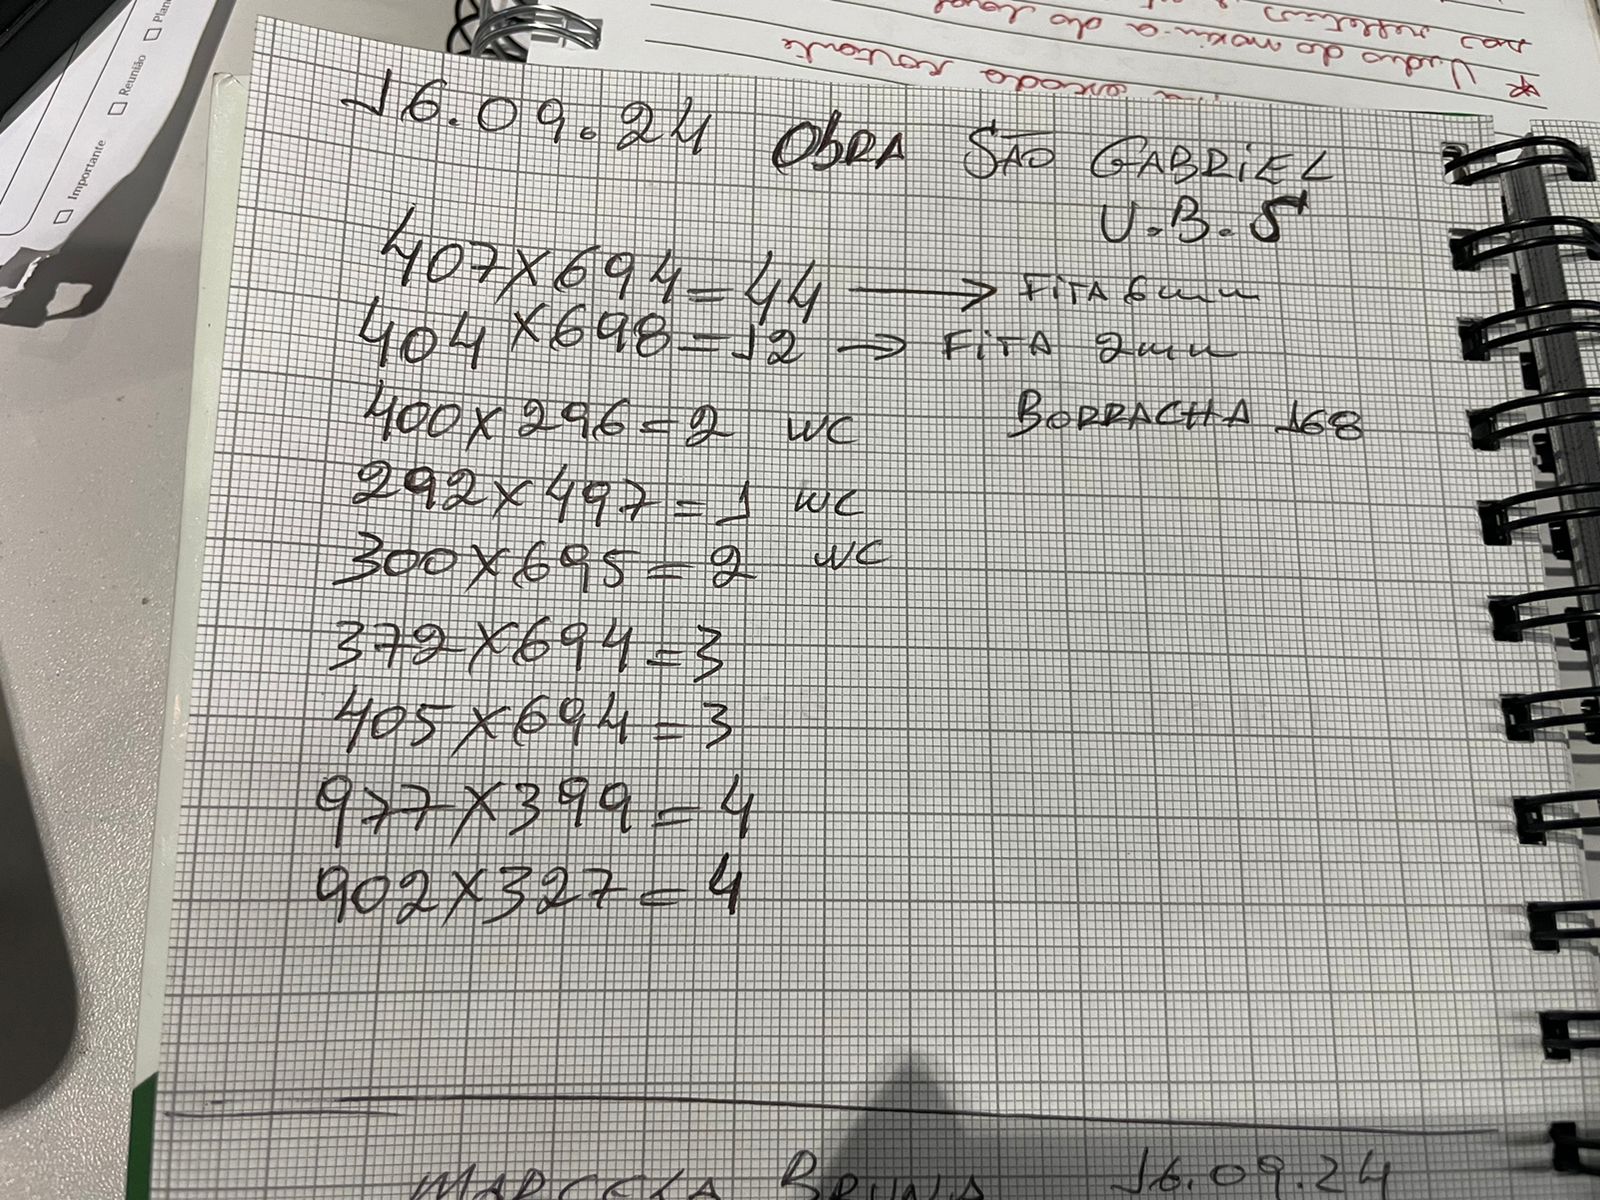 Importante
Reunião
Plane
* Vidro do
16.09.24 OBRA SÃO GABRIEL
U.B.S
407X694=44 → FITA 6mm
404X698=12 → FITA 2mm
400X296=2 WC BORRACHA 168
292X497=1 WC
300X695=2 WC
372X694=3
405X694=3
977X399=4
902X327=4
MARCELA BRUNA 16.09.24